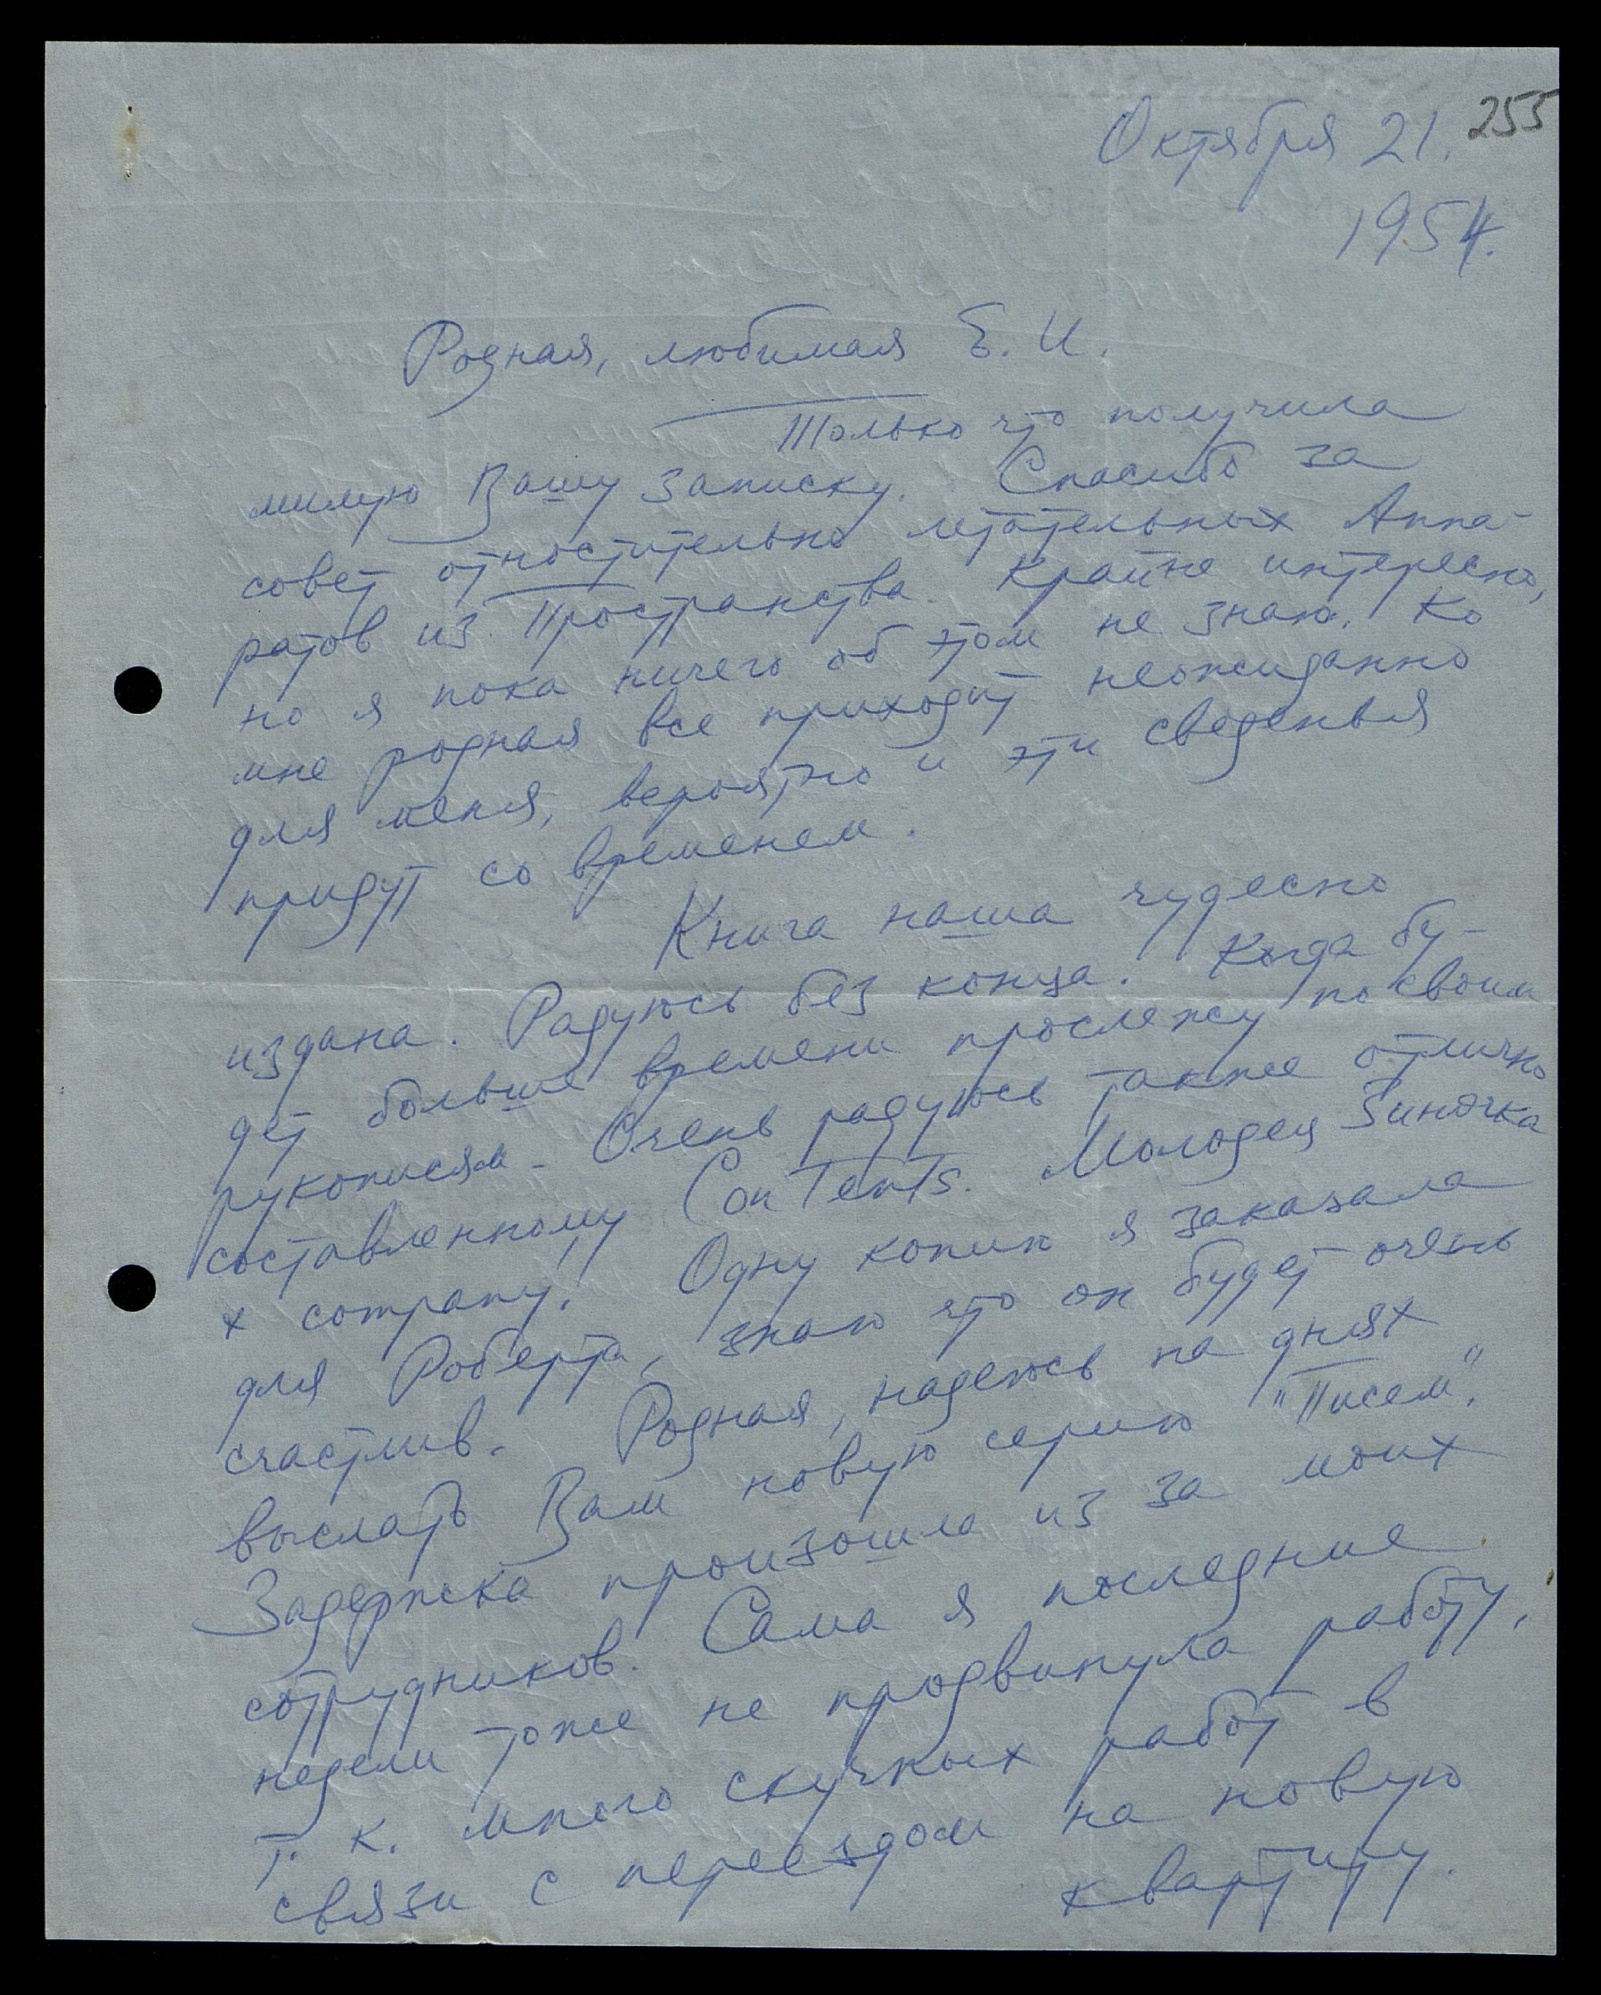 255
Октября 21.
1954.
Родная, любимая Е. И.
Только что получила
милую Вашу записку. Спасибо за
совет относительно летательных Аппа-
ратов из Пространства. Крайне интересно,
но я пока ничего об этом не знаю. Ко
мне родная все приходит неожиданно
для меня, вероятно и эти сведенья
придут со временем.
Книга наша чудесно
издана. Радуюсь без конца. Когда бу-
дет больше времени прослежу по своим
рукописям. Очень радуюсь также отлично
составленному Contents. Молодец Зиночка
х! Одну копию я заказала
для Роберта, знаю что он будет очень
счастлив. Родная, надеюсь на днях
выслать Вам новую серию "Писем".
Задержка произошла из за моих
сотрудников. Сама я последние
недели тоже не продвинула работу,
т. к. много скучных работ в
связи с переездом на новую
квартиру.